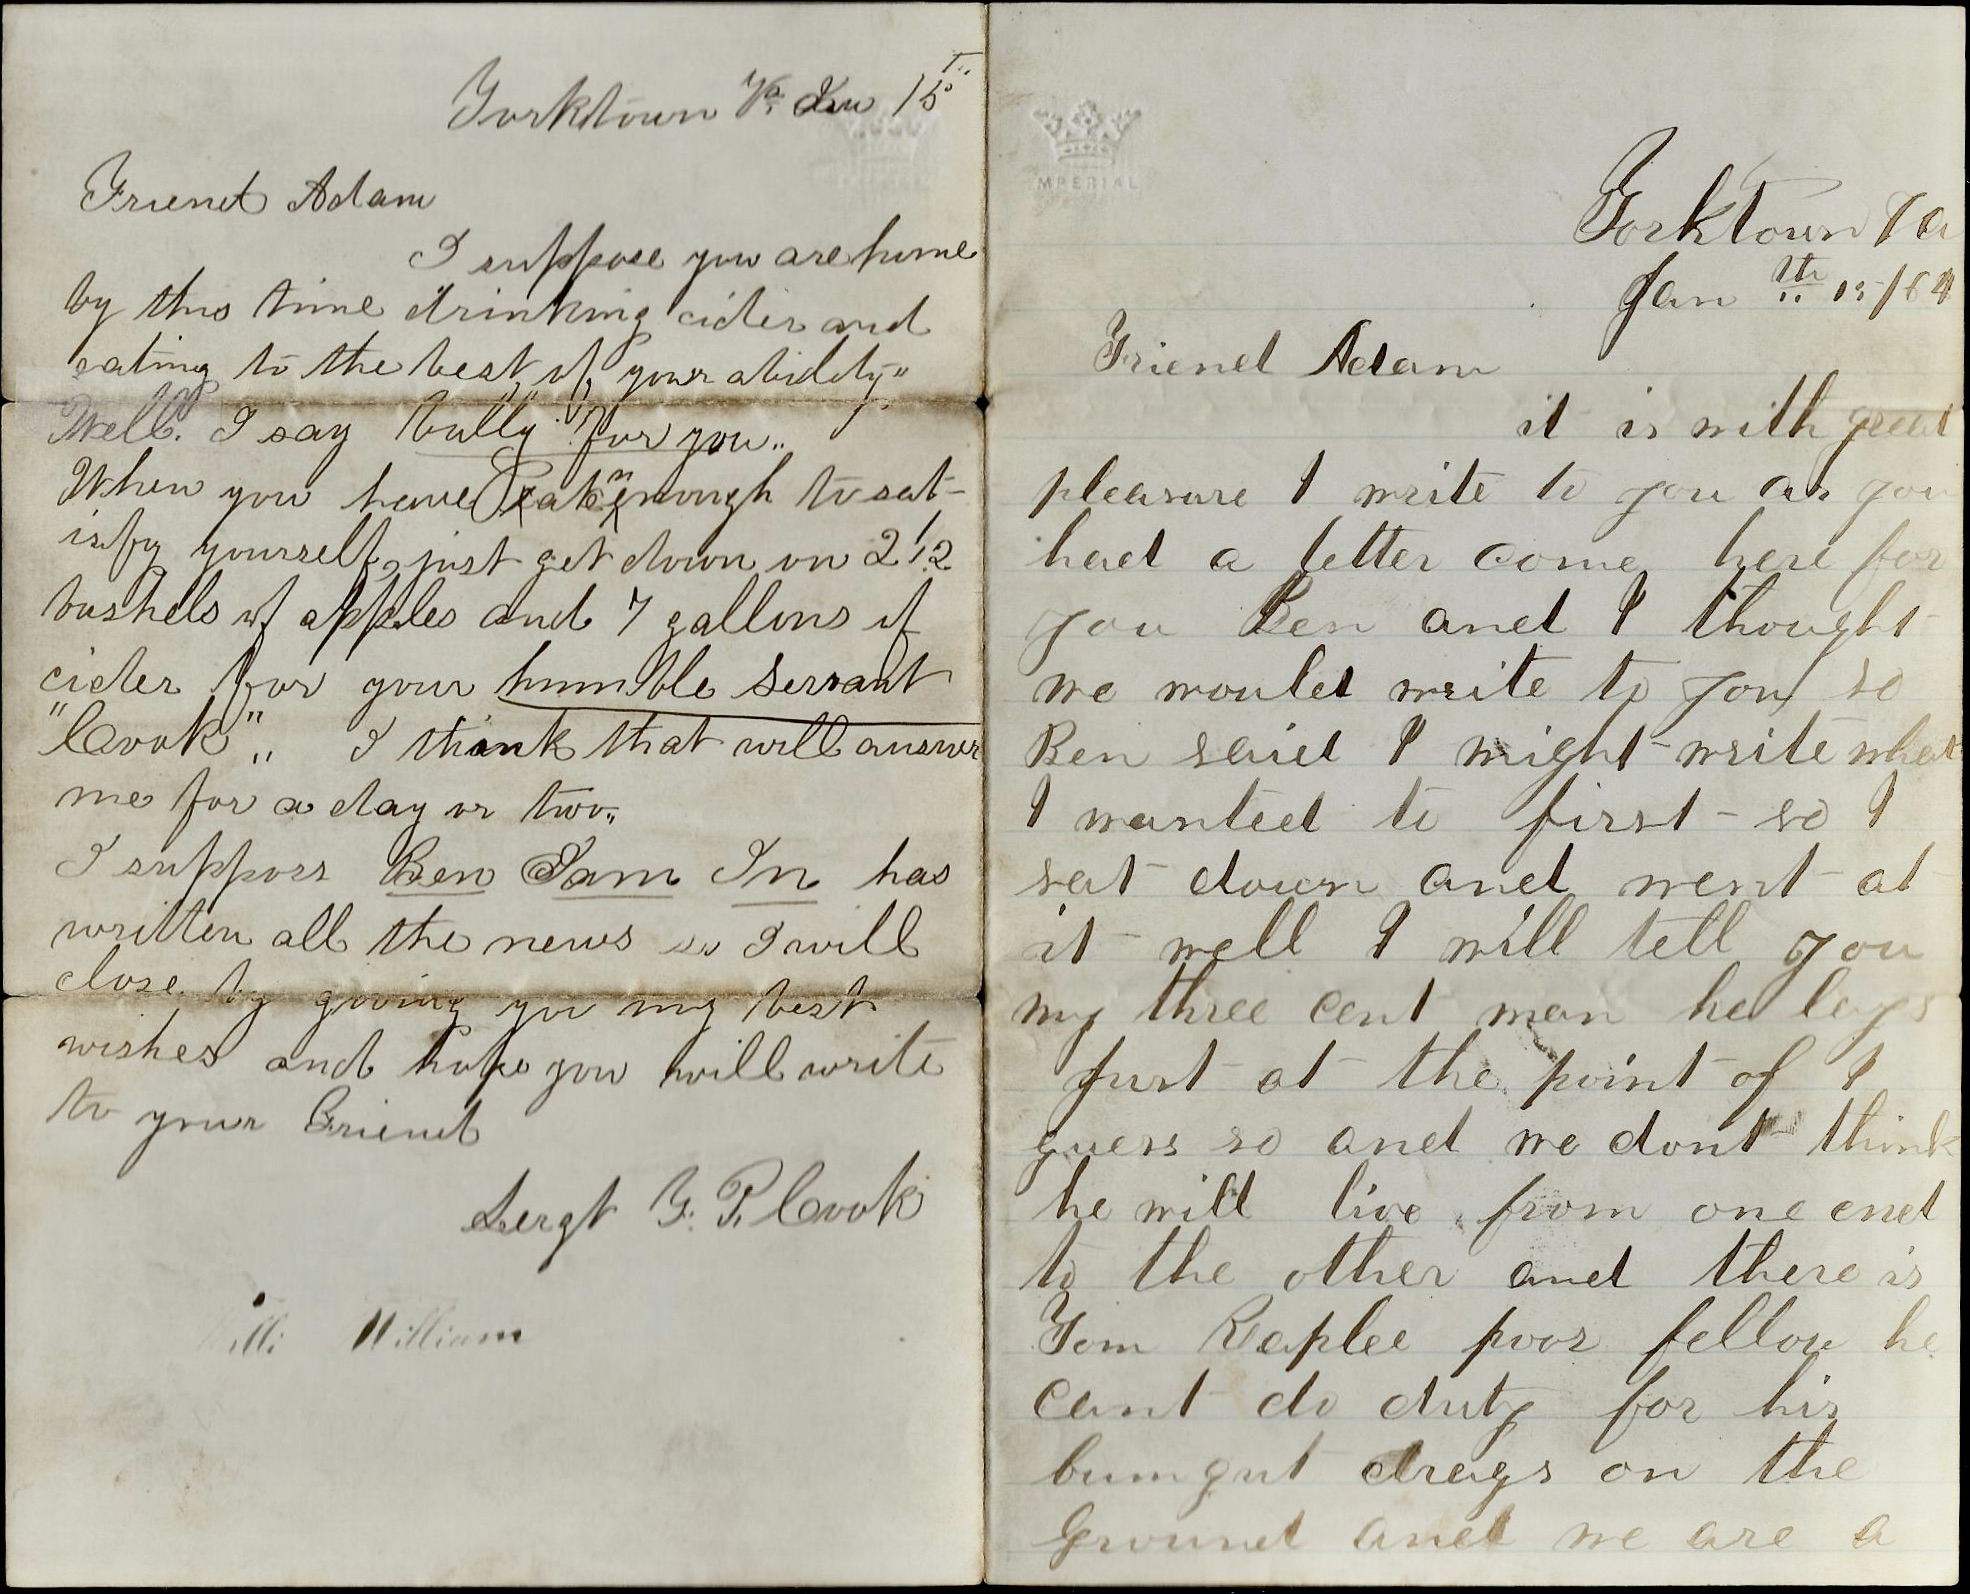 Yorktown Va Jan 15th
Friend Adam
I suppose you are home
by this time drinking cider and
eating to the best of your abidety"
Well. I say bully for you..
When you have eat enough to sat-
isfy yourself, just get down on 2 1/2
bushels of apples and 7 gallons of
cider for your humble servant
"Cook".. I think that will answer
me for a day or two..
I supposs Ben Jam In has
written all the news so I will
close by giving you my best
wishes and hope you will write
to your Friend
Sergt G. P. Cook
William
IMPERIAL
Yorktown Va
Jan th 15/64
Friend Adam
it is with great
pleasure I write to you as you
had a letter come here for
you Ben and I thought
we would write to you so
Ben said I might write what
I wanted to first - so I
sat down and went at
it well I will tell you
my three cent man he lays
just at the point of I
guess so and we dont think
he will live from one end
to the other and there is
Tom Raplee poor fellow he
cant do duty for his
bumgut drags on the
ground and we are a